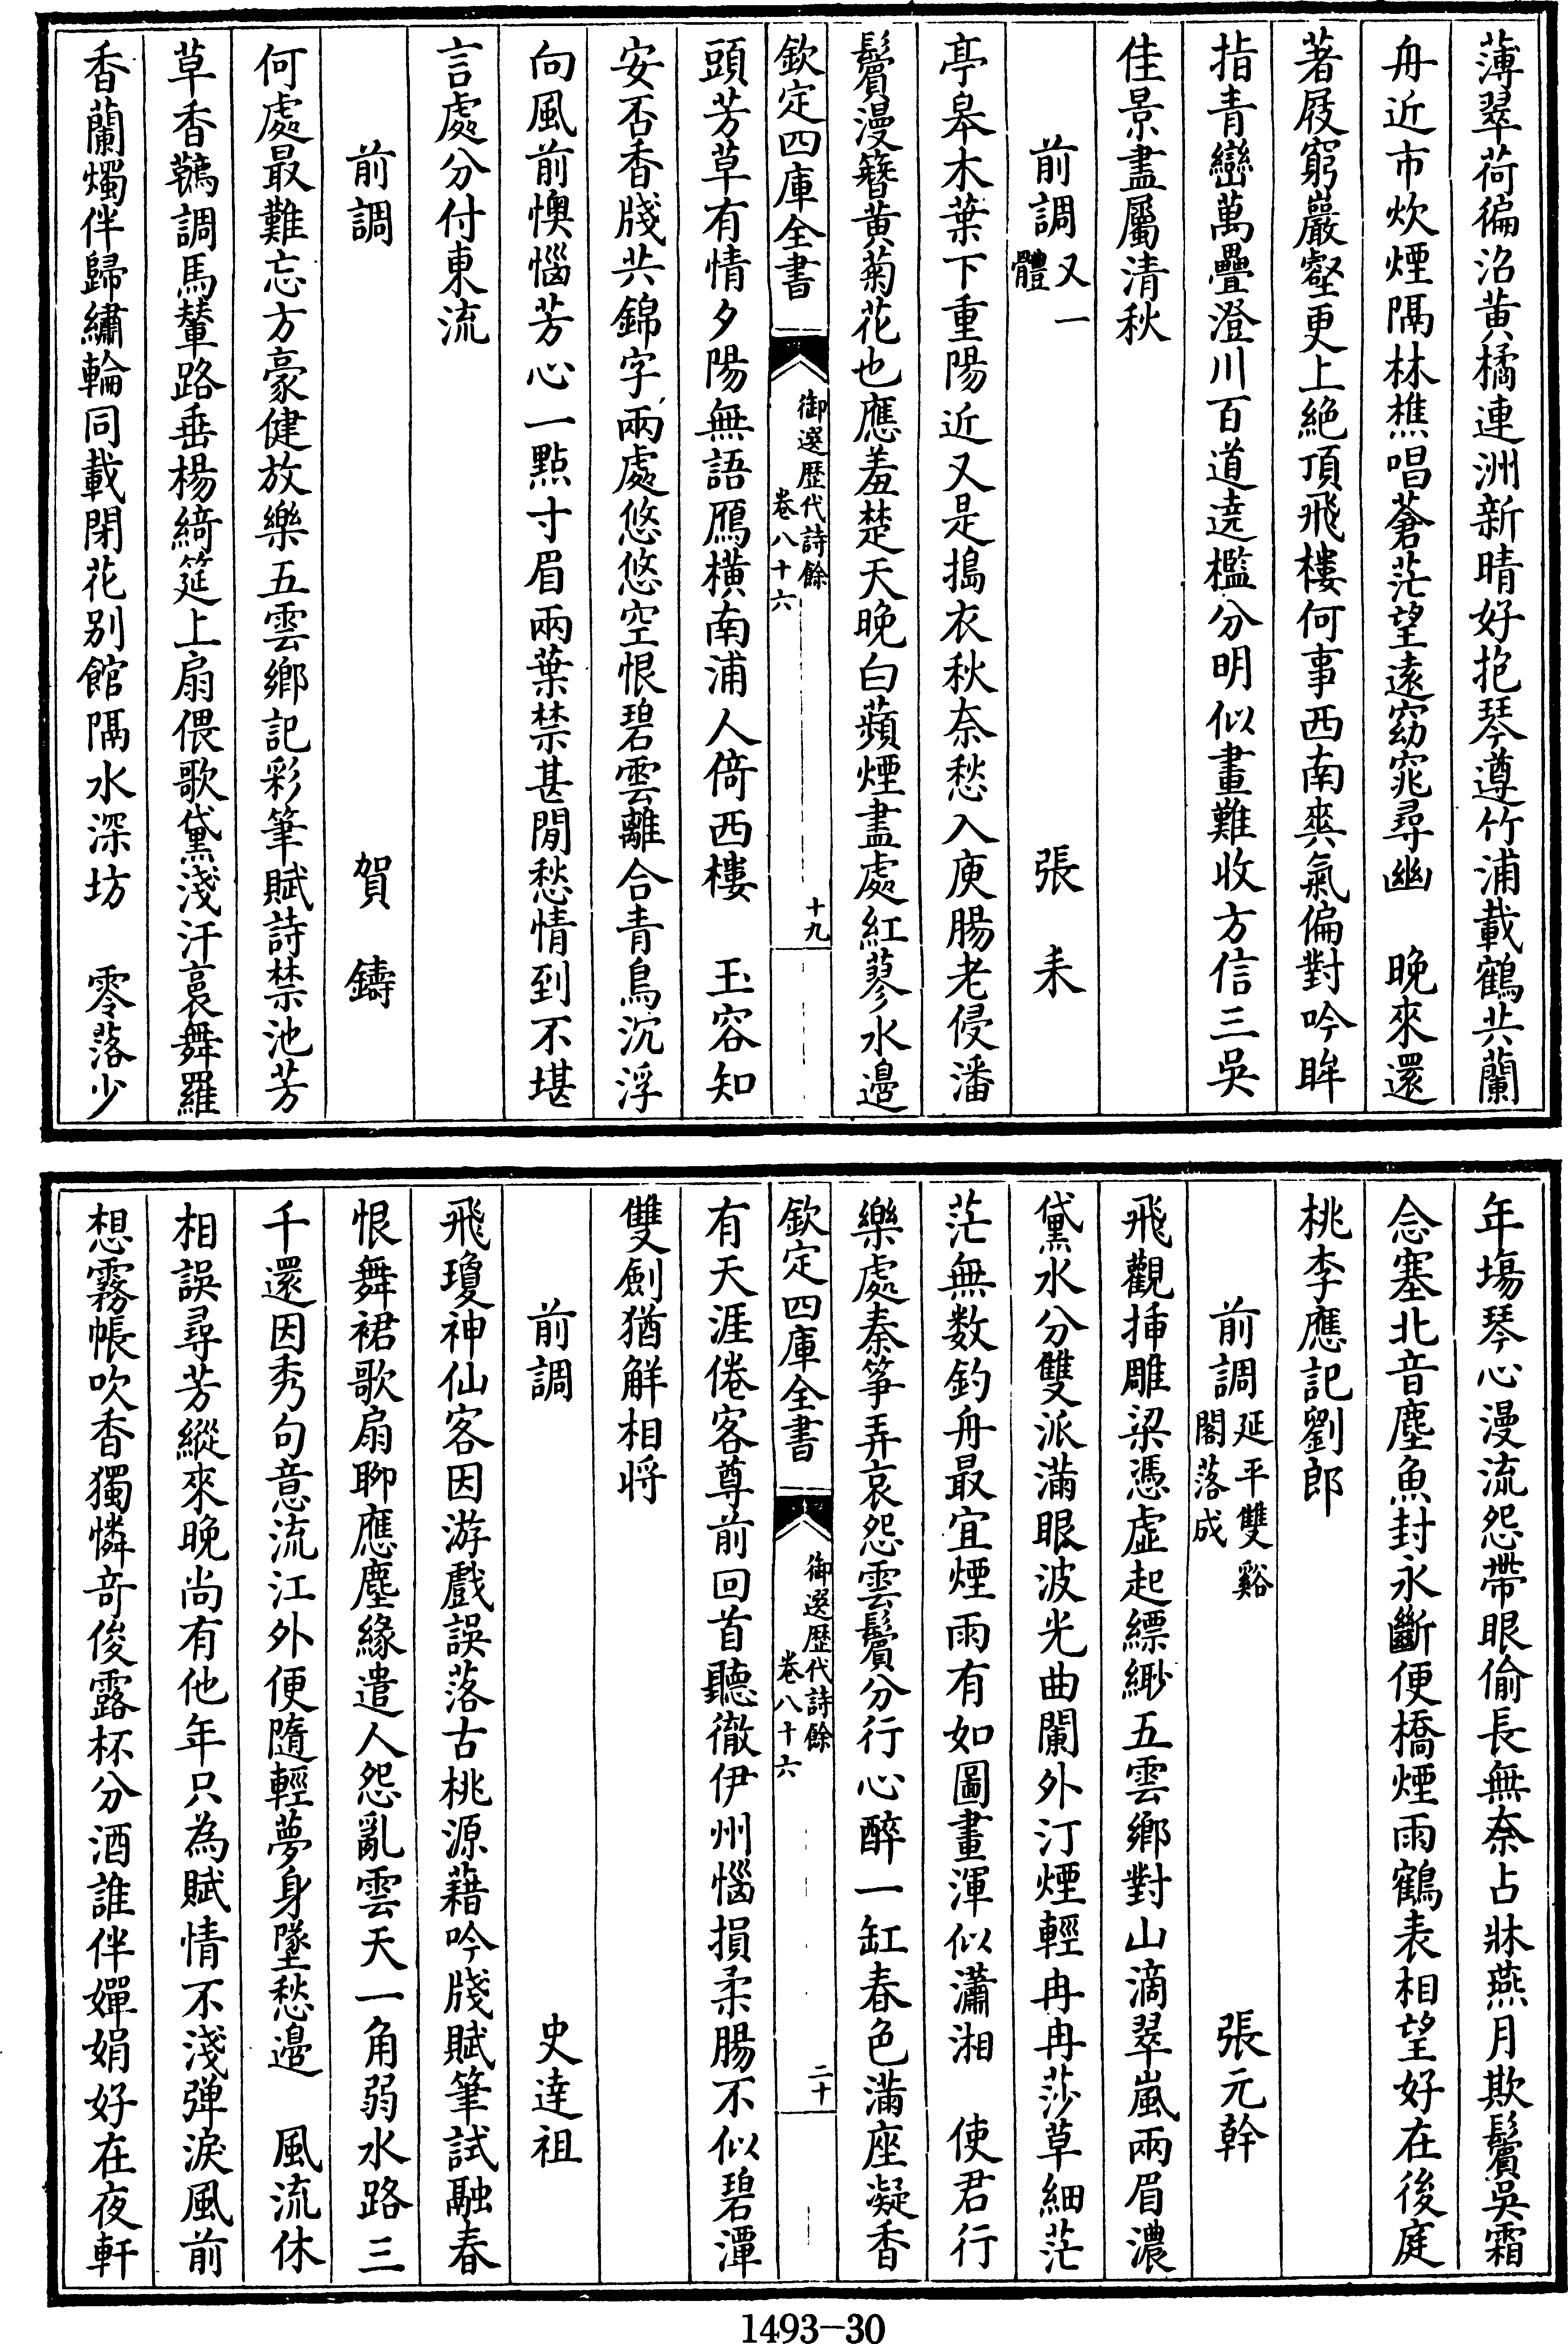 薄翠荷徧沿黄橘連洲新晴好抱琴遵竹浦載鶴共蘭
舟近市炊煙隔林樵唱蒼茫望遠窈窕尋幽　晚來還
著屐窮巖壑更上絶頂飛樓何事西南爽氣偏對吟眸
指青巒萬疊澄川百道遶檻分明似畫難收方信三吳
佳景盡屬清秋
前調又一體　張耒
亭皋木葉下重陽近又是搗衣秋奈愁入庾腸老侵潘
鬢漫簪黄菊花也應羞楚天晚白蘋煙盡處紅蓼水邊
欽定四庫全書　御選歴代詩餘卷八十六　十九
頭芳草有情夕陽無語鴈横南浦人倚西樓　玉容知
安否香牋共錦字兩處悠悠空恨碧雲離合青鳥沉浮
向風前懊惱芳心一點寸眉兩葉禁甚閒愁情到不堪
言處分付東流
前調　賀鑄
何處最難忘方豪健放樂五雲鄉記彩筆賦詩禁池芳
草香韉調馬輦路垂楊綺筵上扇偎歌黛淺汗裛舞羅
香蘭燭伴歸繡輪同載閉花别館隔水深坊　零落少
年塲琴心漫流怨帶眼偷長無奈占牀燕月欺鬢吳霜
念塞北音塵魚封永斷便橋煙雨鶴表相望好在後庭
桃李應記劉郎
前調延平雙谿閣落成　張元幹
飛觀揷雕梁憑虛起縹緲五雲鄉對山滴翠嵐兩眉濃
黛水分雙派滿眼波光曲闌外汀煙輕冉冉莎草細茫
茫無数釣舟最宜煙雨有如圖畫渾似瀟湘　使君行
樂處秦筝弄哀怨雲鬢分行心醉一缸春色滿座凝香
欽定四庫全書　御選歴代詩餘卷八十六　二十
有天涯倦客尊前回首聽徹伊州惱損柔腸不似碧潭
雙劍猶觧相将
前調　史達祖
飛瓊神仙客因游戲誤落古桃源藉吟牋賦筆試融春
恨舞裙歌扇聊應塵緣遣人怨亂雲天一角弱水路三
千還因秀句意流江外便隨輕夢身墜愁邊　風流休
相誤尋芳縱來晚尚有他年只為賦情不淺弹淚風前
想霧帳吹香獨憐竒俊露杯分酒誰伴嬋娟好在夜軒
1493-30